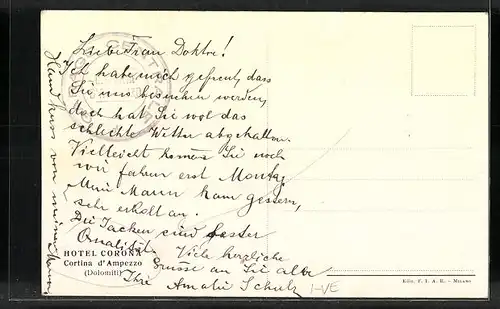 Liebe Frau Doktor!
Ich habe mich gefreut, dass
Sie uns besuchen werden,
doch hat Sie wol das
schlechte Wetter abgehalten.
Vielleicht kommen Sie noch
wir fahren erst Montag
Mein Mann kam gestern,
sehr erholt an.
Die Jacken sind fester
Qualität. Viele herzliche
Grüsse an Sie alle
Ihre Amalie Schulz
Handkuss von meinem Mann
HOTEL CORONA
Cortina d'Ampezzo
(Dolomiti)
Köln, F. I. A. R. - MILANO
I-VE